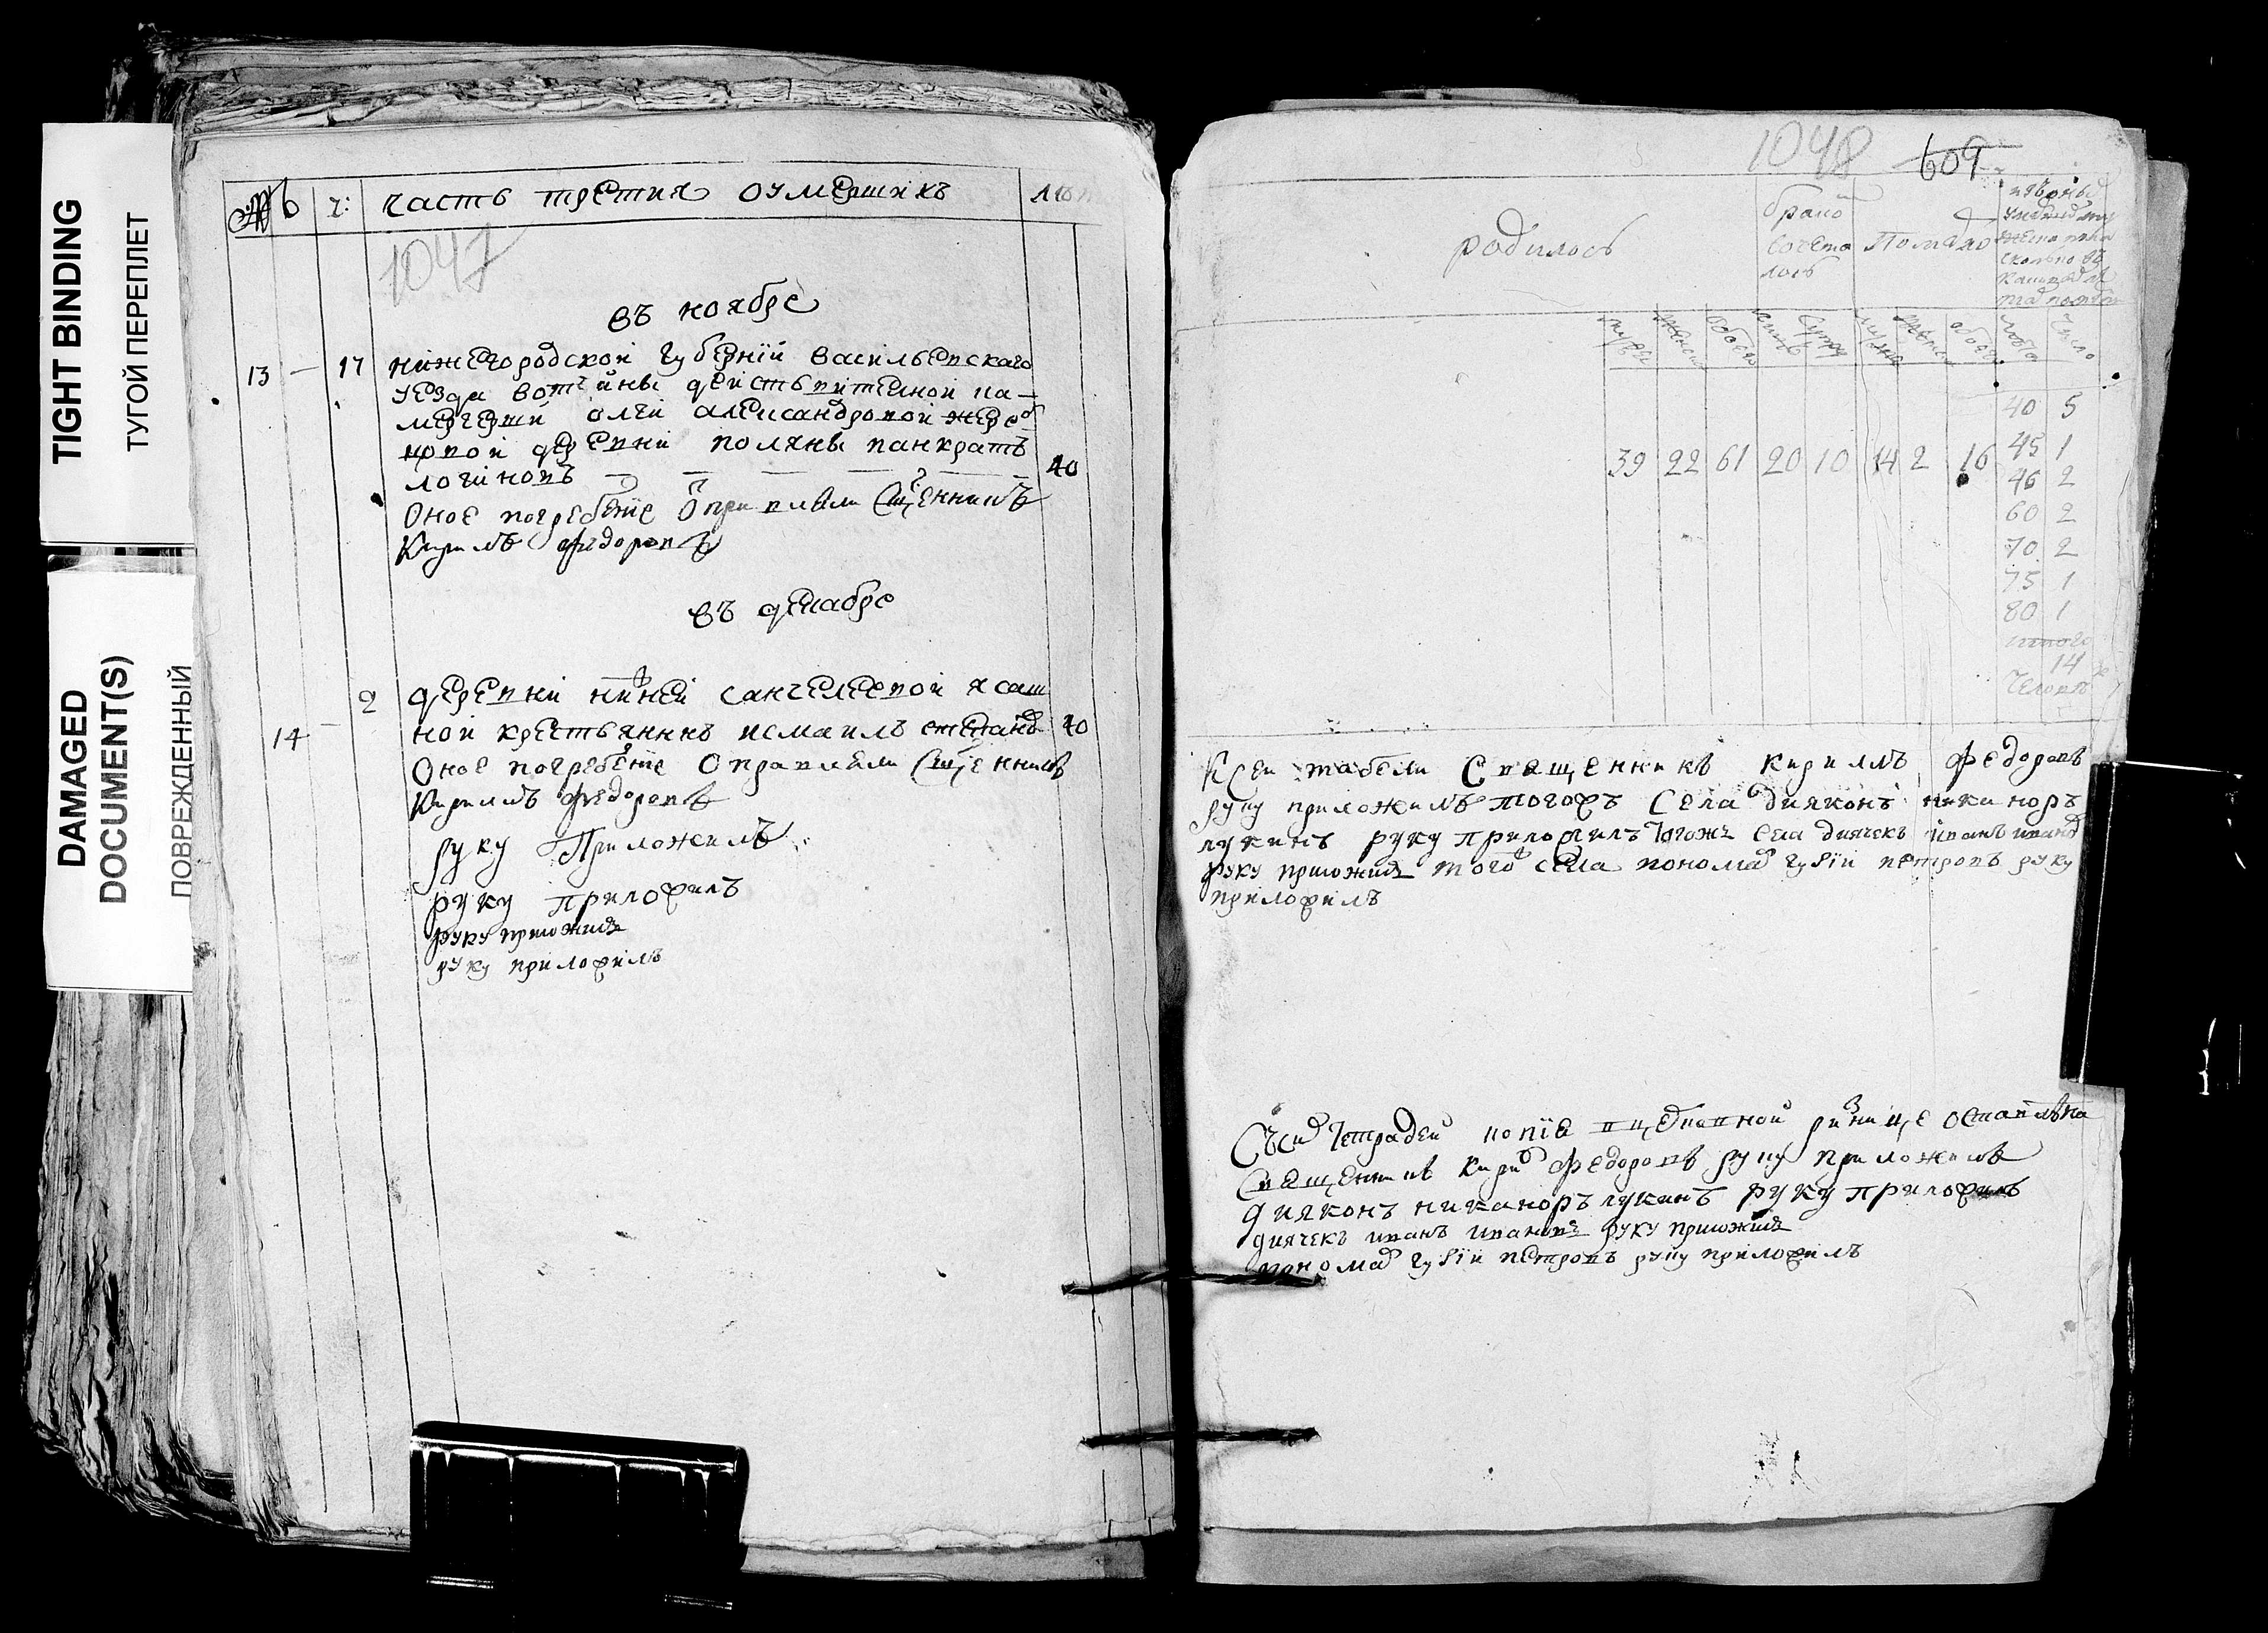 TIGHT BINDING
ТУГОЙ ПЕРЕПЛЕТ
DAMAGED
DOCUMENT(S)
ПОВРЕЖДЕННЫЙ
№ ч: часть третия о умерших лет
1047
въ ноябре
13 — 17 нижегородской губернїи васильевскаго
уезда вотчины действителной ка-
мергерши
деревни поляны панкратъ
логиновъ 40
Оное погребенїе отправляли Сщенникъ
Кирилъ Федоровъ
въ декабре
2 деревни нижней ясаш
14 — ной крестьянинъ исмаилъ степанов 40
Оное погребенїе Отправляли Сщенникъ
Кириллъ Федоровъ
руку Приложилъ
руку приложилъ
руку приложилъ
руку приложилъ
1048 609
родилось
брако
сочета
лось
Померло
39 22 61 20 10 14 2 16
40 5
45 1
46 2
60 2
70 2
75 1
80 1
итого
14
человекъ
К сей табели Священникъ Кирилъ Федоровъ
руку приложилъ тогожъ Села диаконъ никаноръ
лукинъ руку приложилъ тогожъ села диячекъ иванъ иванов
руку приложилъ того села пономар гурїй петровъ руку
приложилъ
Съ сих тетрадей копїя в церковной ризнице оставлена
Священникъ Кирил Федоровъ руку приложилъ
диаконъ никаноръ лукинъ руку приложилъ
диячекъ иванъ ивановъ руку приложилъ
пономар гурїй петровъ руку приложилъ